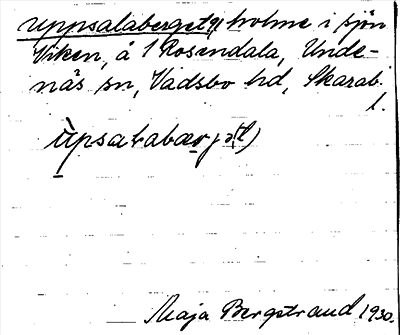 Uppsalaberget, holme i sjön
Viken, å 1 Rosendala, Unde-
näs sn, Vadsbo hd, Skarab.
l.
Maja Bergstrand 1930.